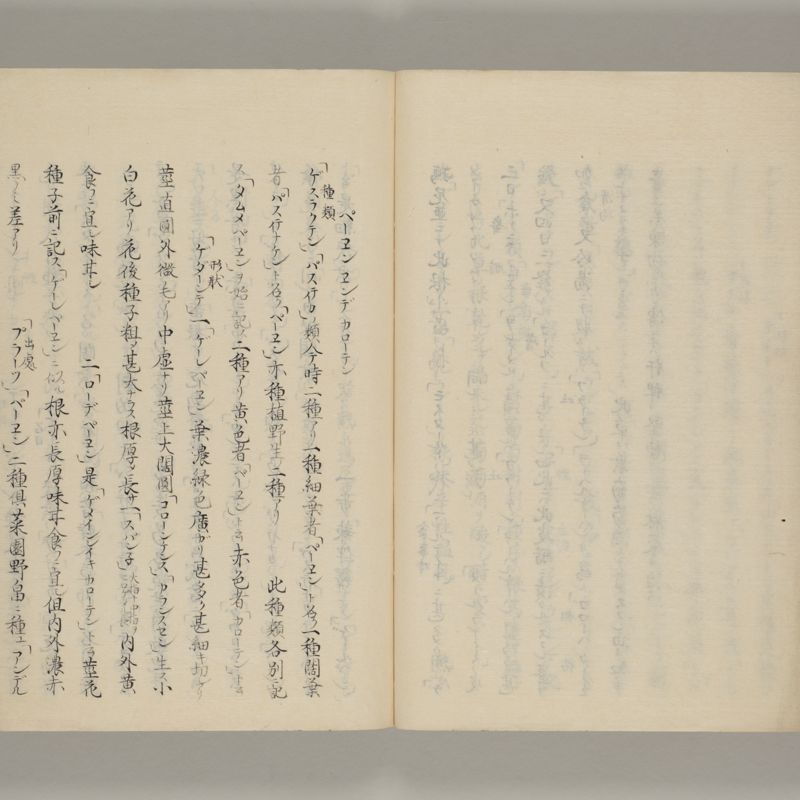 ペーヱン ヱンデ カローテン
種類
「ゲスラクテン」「パステイナカ」類今時二種アリ一種細葉者「ペーヱン」ト名ク一種闊葉
者「パステイナケン」ト名ク「ペーヱン」亦種植野生二種アリ 此種類各別ニ記
ス「タムメペーヱン」ヲ始ニ記ス二種アリ黄色者「ペーヱン」ト云赤色者「カローテン」ト云
形状
「ゲダーンテ」一「ゲーレペーヱン」葉濃緑色廣ガリ甚多ク甚細キ切レアリ
莖直圓外微毛アリ中虚ナリ莖上大闊圓「コローンチンス」「カランスヱン」生ス小
白花アリ花後種子粗ク甚大ナラス根厚ク長サ一「スパン子」内外黄
食フニ宜シ味甘シ 二「ローデペーヱン」是「ゲメインイキカローテン」ト云莖花
種子前ニ記ス「ゲーレペーヱン」ニ似ル根亦長厚味甘食フニ宜シ但内外濃赤
黒クミ差アリ
出處
「プラーツ」「ペーヱン」二種倶菜園野畠ニ種ユ「アンデル